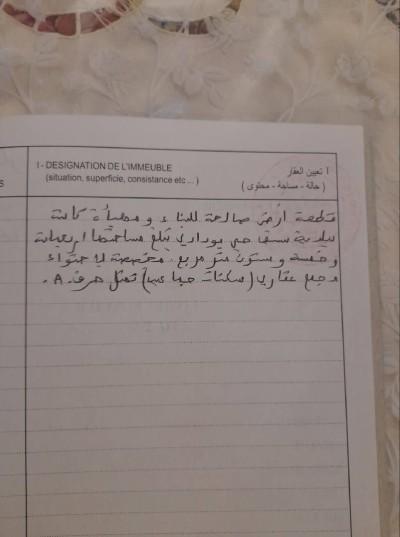 I - DESIGNATION DE L'IMMEUBLE
(situation, superficie, consistance etc ... )
I تعيين العقار
( حالة - مساحة - محتوى )
قطعة أرض صالحة للبناء و مهيأة كائنة
ببلدية حي بوداني تبلغ مساحتها اربعمائة
وخمسة وستون متر مربع. مخصصة لاحتواء
مجمع عقاري (سكنات جماعية) تمثل حرف A.